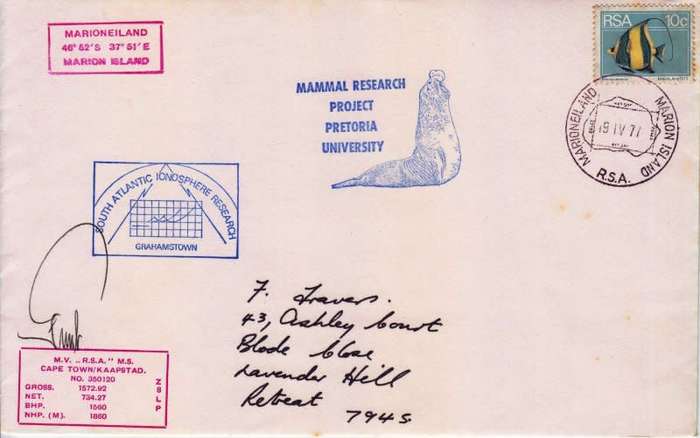 MARIONEILAND
46° 52'S 37° 51'E
MARION ISLAND
RSA 10c
MAMMAL RESEARCH
PROJECT
PRETORIA
UNIVERSITY
MARIONEILAND MARION ISLAND
19 IV 77
R.S.A.
SOUTH ATLANTIC IONOSPHERE RESEARCH
GRAHAMSTOWN
F. Travers.
43, Ashley Court
Blode Close
Lavender Hill
Retreat
7945
M.V. „R.S.A." M.S.
CAPE TOWN/KAAPSTAD.
NO. 350120
GROSS. 1572.92
NET. 734.27
BHP. 1560
NHP. (M). 1860
ZSLP